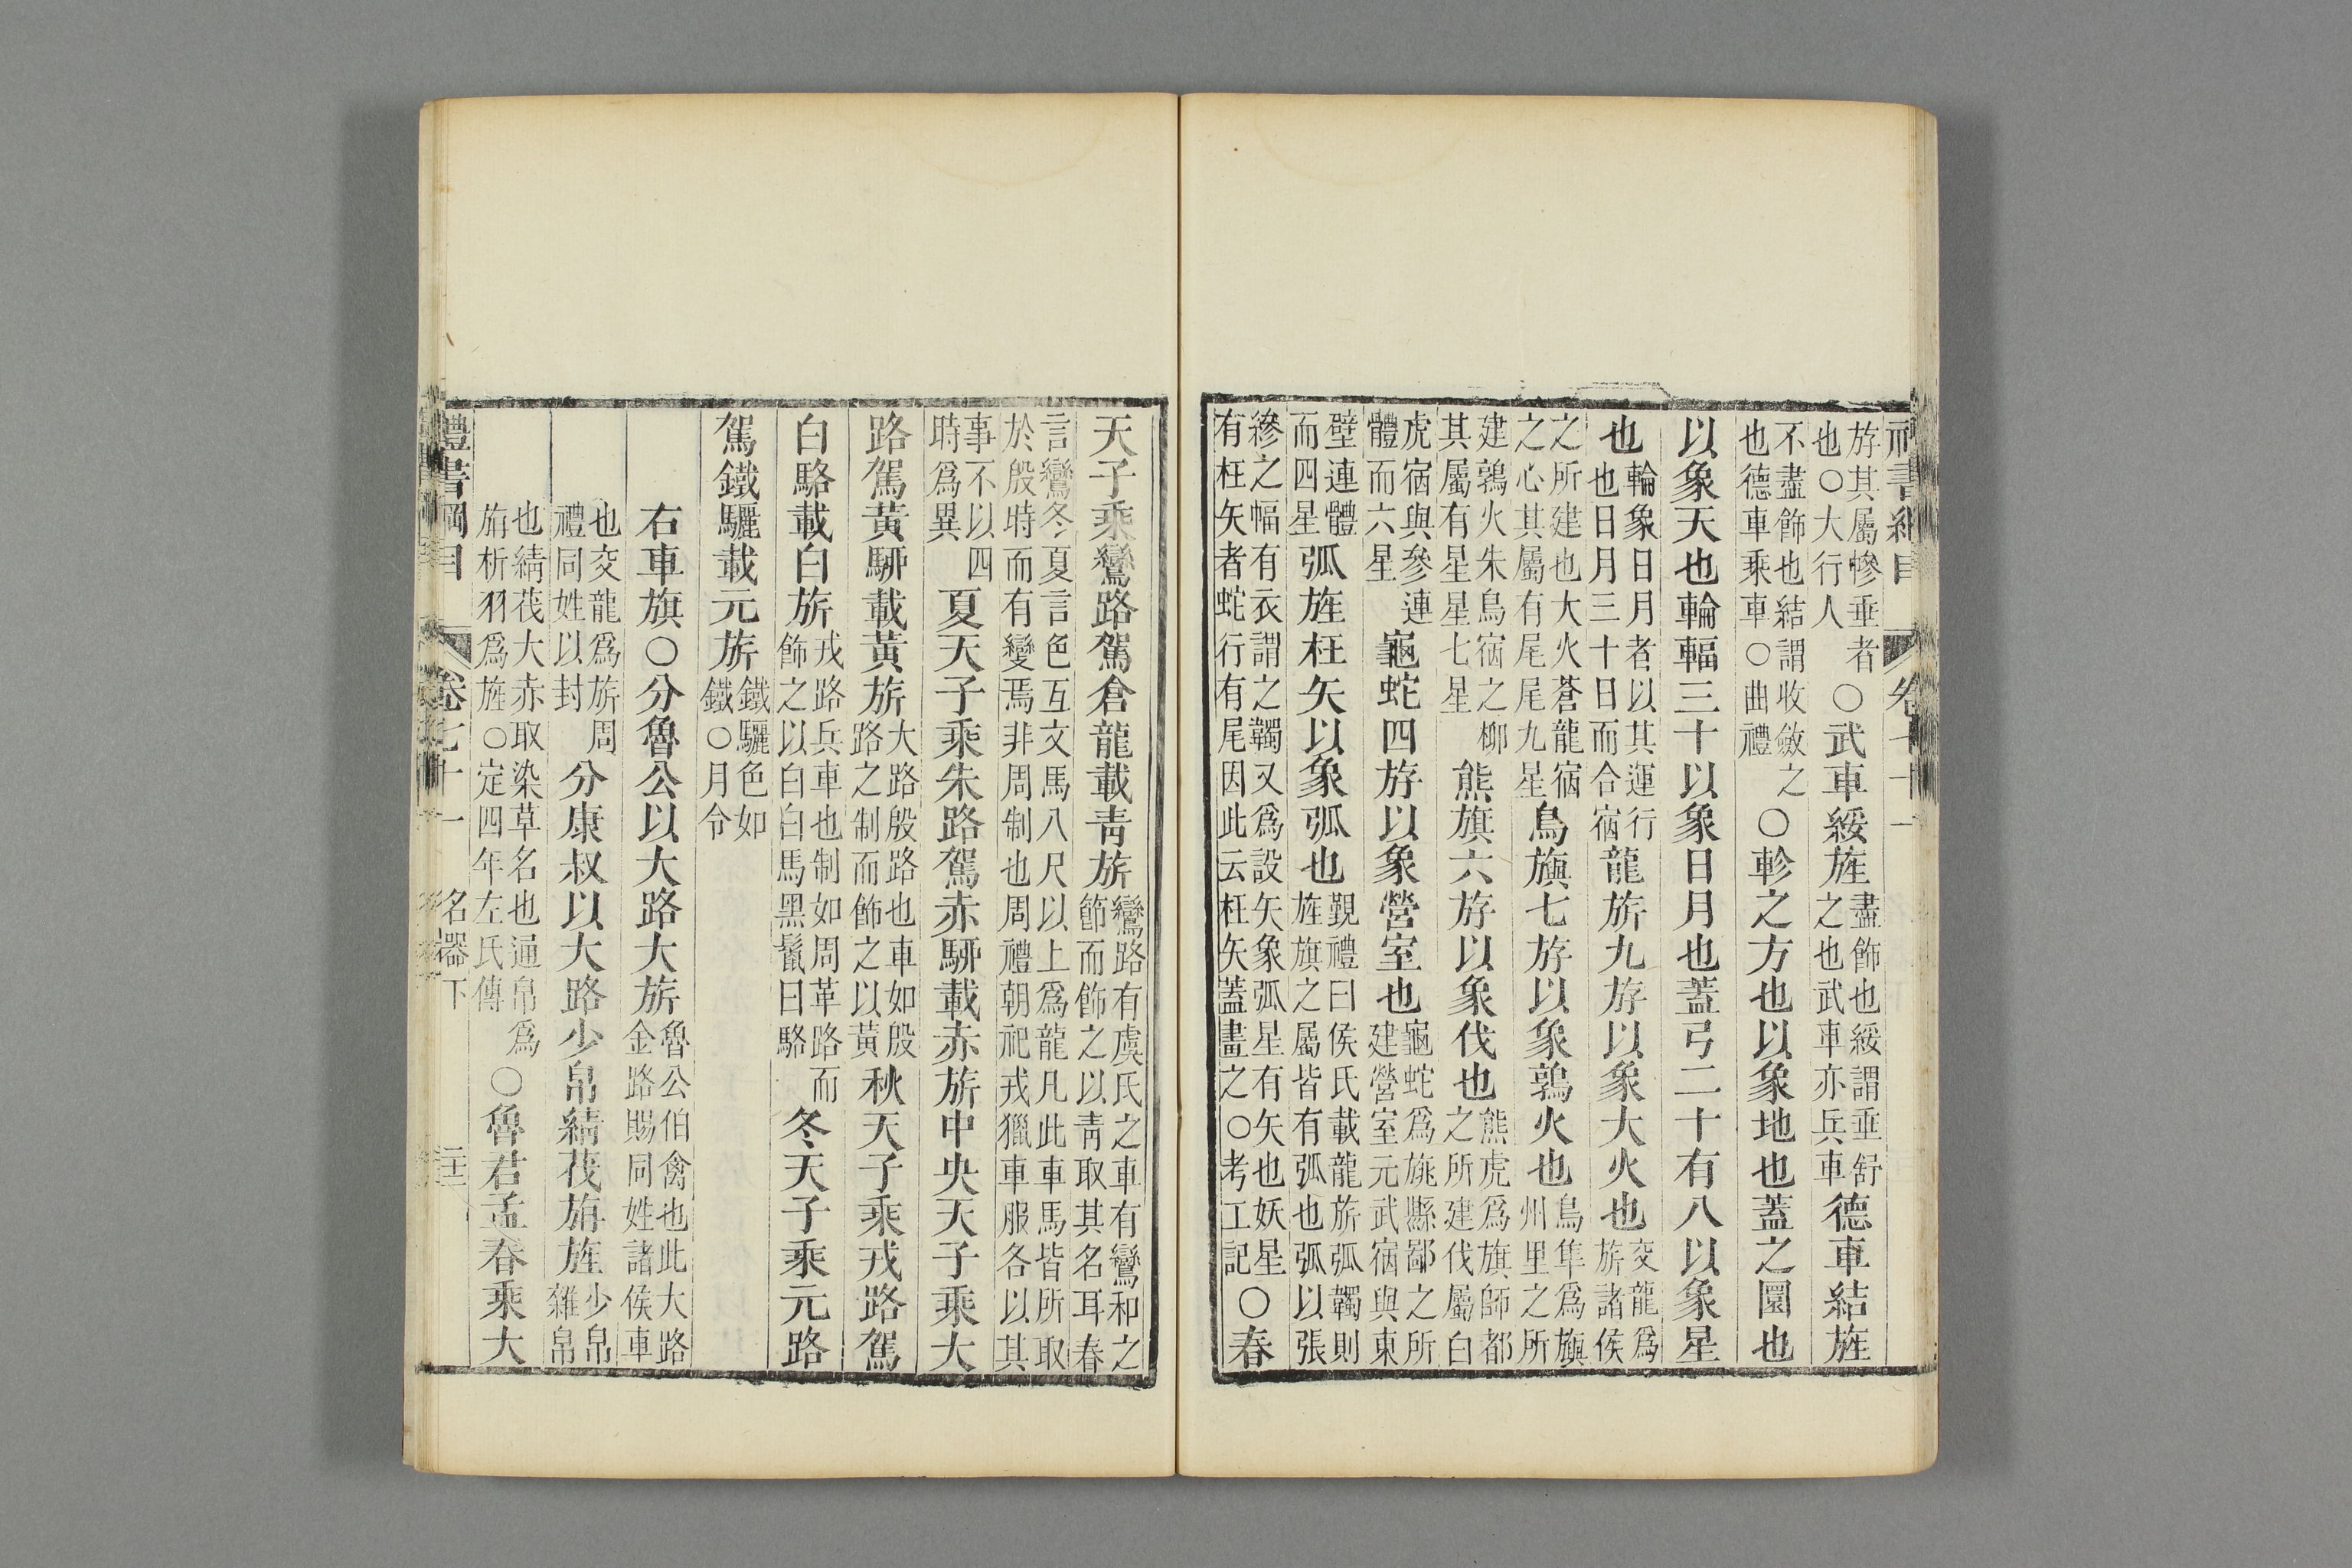 斿其屬㡓垂者也○大行人○武車綏旌盡飾也綏謂垂舒之也武車亦兵車德車結旌
不盡飾也結謂收斂之也德車乘車○曲禮○軫之方也以象地也蓋之圜也
以象天也輪輻三十以象日月也蓋弓二十有八以象星
也輪象日月者以其運行也日月三十日而合宿龍旂九斿以象大火也交龍爲旂諸侯
之所建也大火蒼龍宿之心其屬有尾尾九星鳥旟七斿以象鶉火也鳥隼爲旟州里之所
建鶉火朱鳥宿之柳其屬有星星七星熊旗六斿以象伐也熊虎爲旗師都之所建伐屬白
虎宿與參連體而六星龜蛇四斿以象營室也龜蛇爲旐縣鄙之所建營室元武宿與東
壁連體而四星弧旌枉矢以象弧也覲禮曰侯氏載龍旂弧韣則旌旗之屬皆有弧也弧以張
縿之幅有衣謂之韣又爲設矢象弧星有矢也妖星有枉矢者蛇行有尾因此云枉矢蓋畫之○考工記○春
天子乘鸞路駕倉龍載靑旂鸞路有虞氏之車有鸞和之節而飾之以靑取其名耳春
言鸞冬夏言色互文馬八尺以上爲龍凡此車馬皆所取於殷時而有變焉非周制也周禮朝祀戎獵車服各以其
事不以四時爲異夏天子乘朱路駕赤駵載赤旂中央天子乘大
路駕黃駵載黃旂大路殷路也車如殷路之制而飾之以黃秋天子乘戎路駕
白駱載白旂戎路兵車也制如周革路而飾之以白白馬黑鬣曰駱冬天子乘元路
駕鐵驪載元旂鐵驪色如鐵○月令
右車旗○分魯公以大路大旂魯公伯禽也此大路金路賜同姓諸侯車
也交龍爲旂周禮同姓以封分康叔以大路少帛綪茷旃旌少帛雜帛
也綪茷大赤取染草名也通帛爲旃析羽爲旌○定四年左氏傳○魯君孟春乘大
禮書綱目 卷七十一 名器下